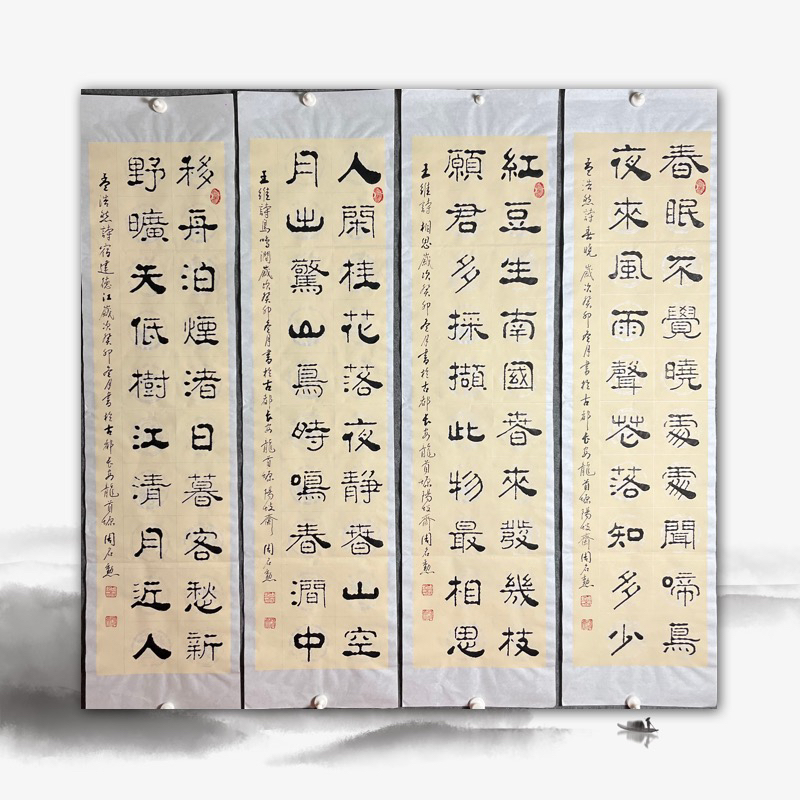 春眠不覺曉處處聞啼鳥
夜來風雨聲花落知多少
孟浩然詩春曉歲次癸卯冬月書於古都長安龍首塬陽齋周石勲
紅豆生南國春來發幾枝
願君多採擷此物最相思
王維詩相思歲次癸卯冬月書於古都長安龍首塬陽齋周石勲
人閑桂花落夜靜春山空
月出驚山鳥時鳴春澗中
王維詩鳥鳴澗歲次癸卯冬月書於古都長安龍首塬陽齋周石勲
移舟泊煙渚日暮客愁新
野曠天低樹江清月近人
孟浩然詩宿建德江歲次癸卯冬月書於古都長安龍首塬周石勲